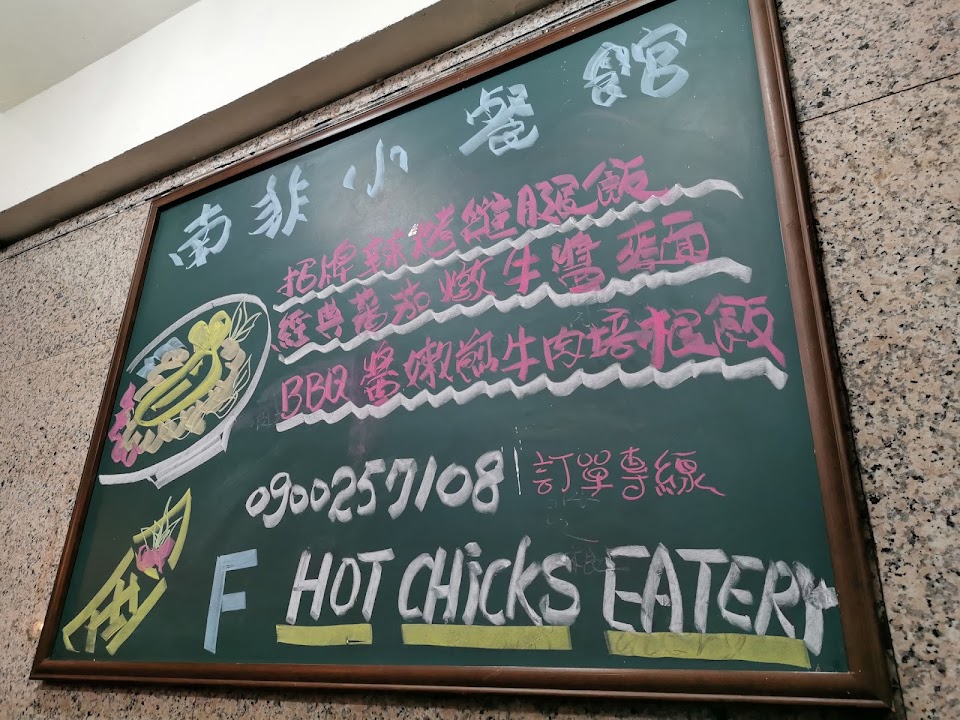 南非小餐館
招牌辣烤雞腿飯
經典蕃茄燉牛醬麵
BBQ醬嫩煎牛肉培根飯
0900257108 訂單專線
F HOT CHiCKS EATERY